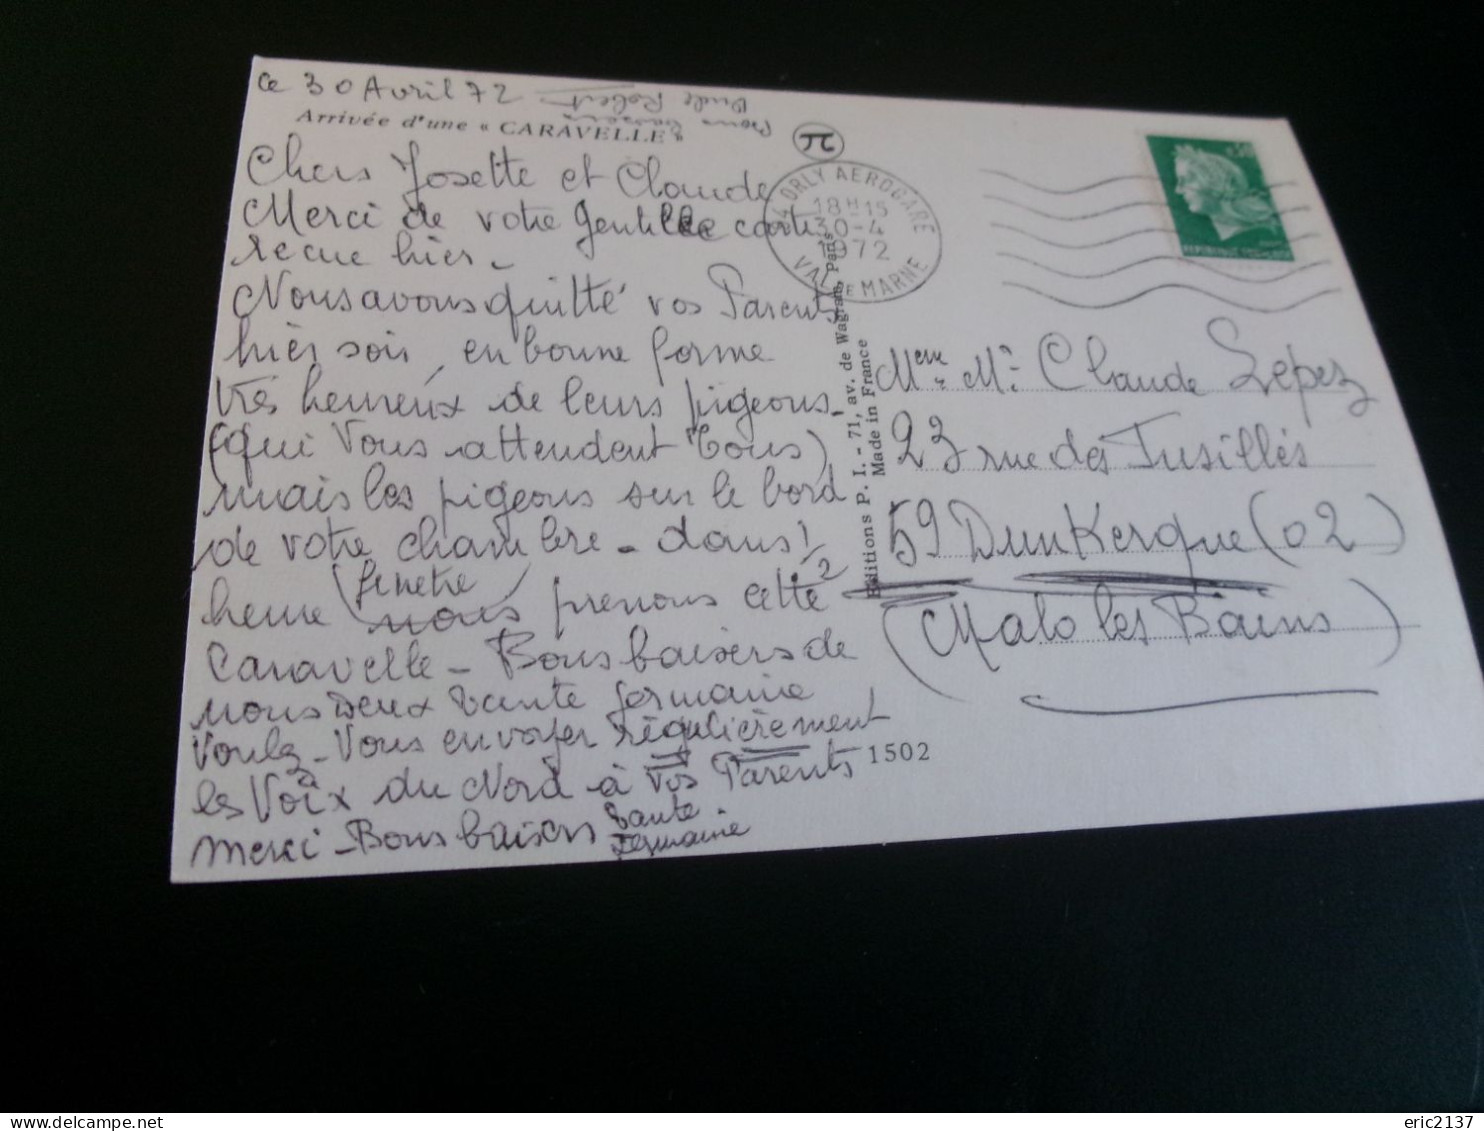 ce 30 Avril 72
Bons baisers
Oncle Robert
Arrivée d'une « CARAVELLE »
Chers Josette et Claude
Merci de votre gentille carte
recue hier -
Nous avons quitté vos Parents
hier soir, en bonne forme
très heureux de leurs pigeons -
(qui vous attendent tous)
mais les pigeons sur le bord
de votre chambre - dans 1/2
fenetre
heure nous prenons cette
Caravelle - Bons baisers de
nous deux tante germaine
Voulez-Vous envoyer régulièrement
les Voix du Nord à vos Parents
merci - Bons baisers tante
germaine
1502
Editions P. I. - 71, av. de Wagram, Paris
Made in France
94 ORLY AEROGARE
18H15
30-4
1972
VAL DE MARNE
0,30
REPUBLIQUE FRANÇAISE
Mme Mr Claude Lepez
23 rue des Fusillés
59 Dunkerque (02)
(Malo les Bains)
delcampe.net
eric2137